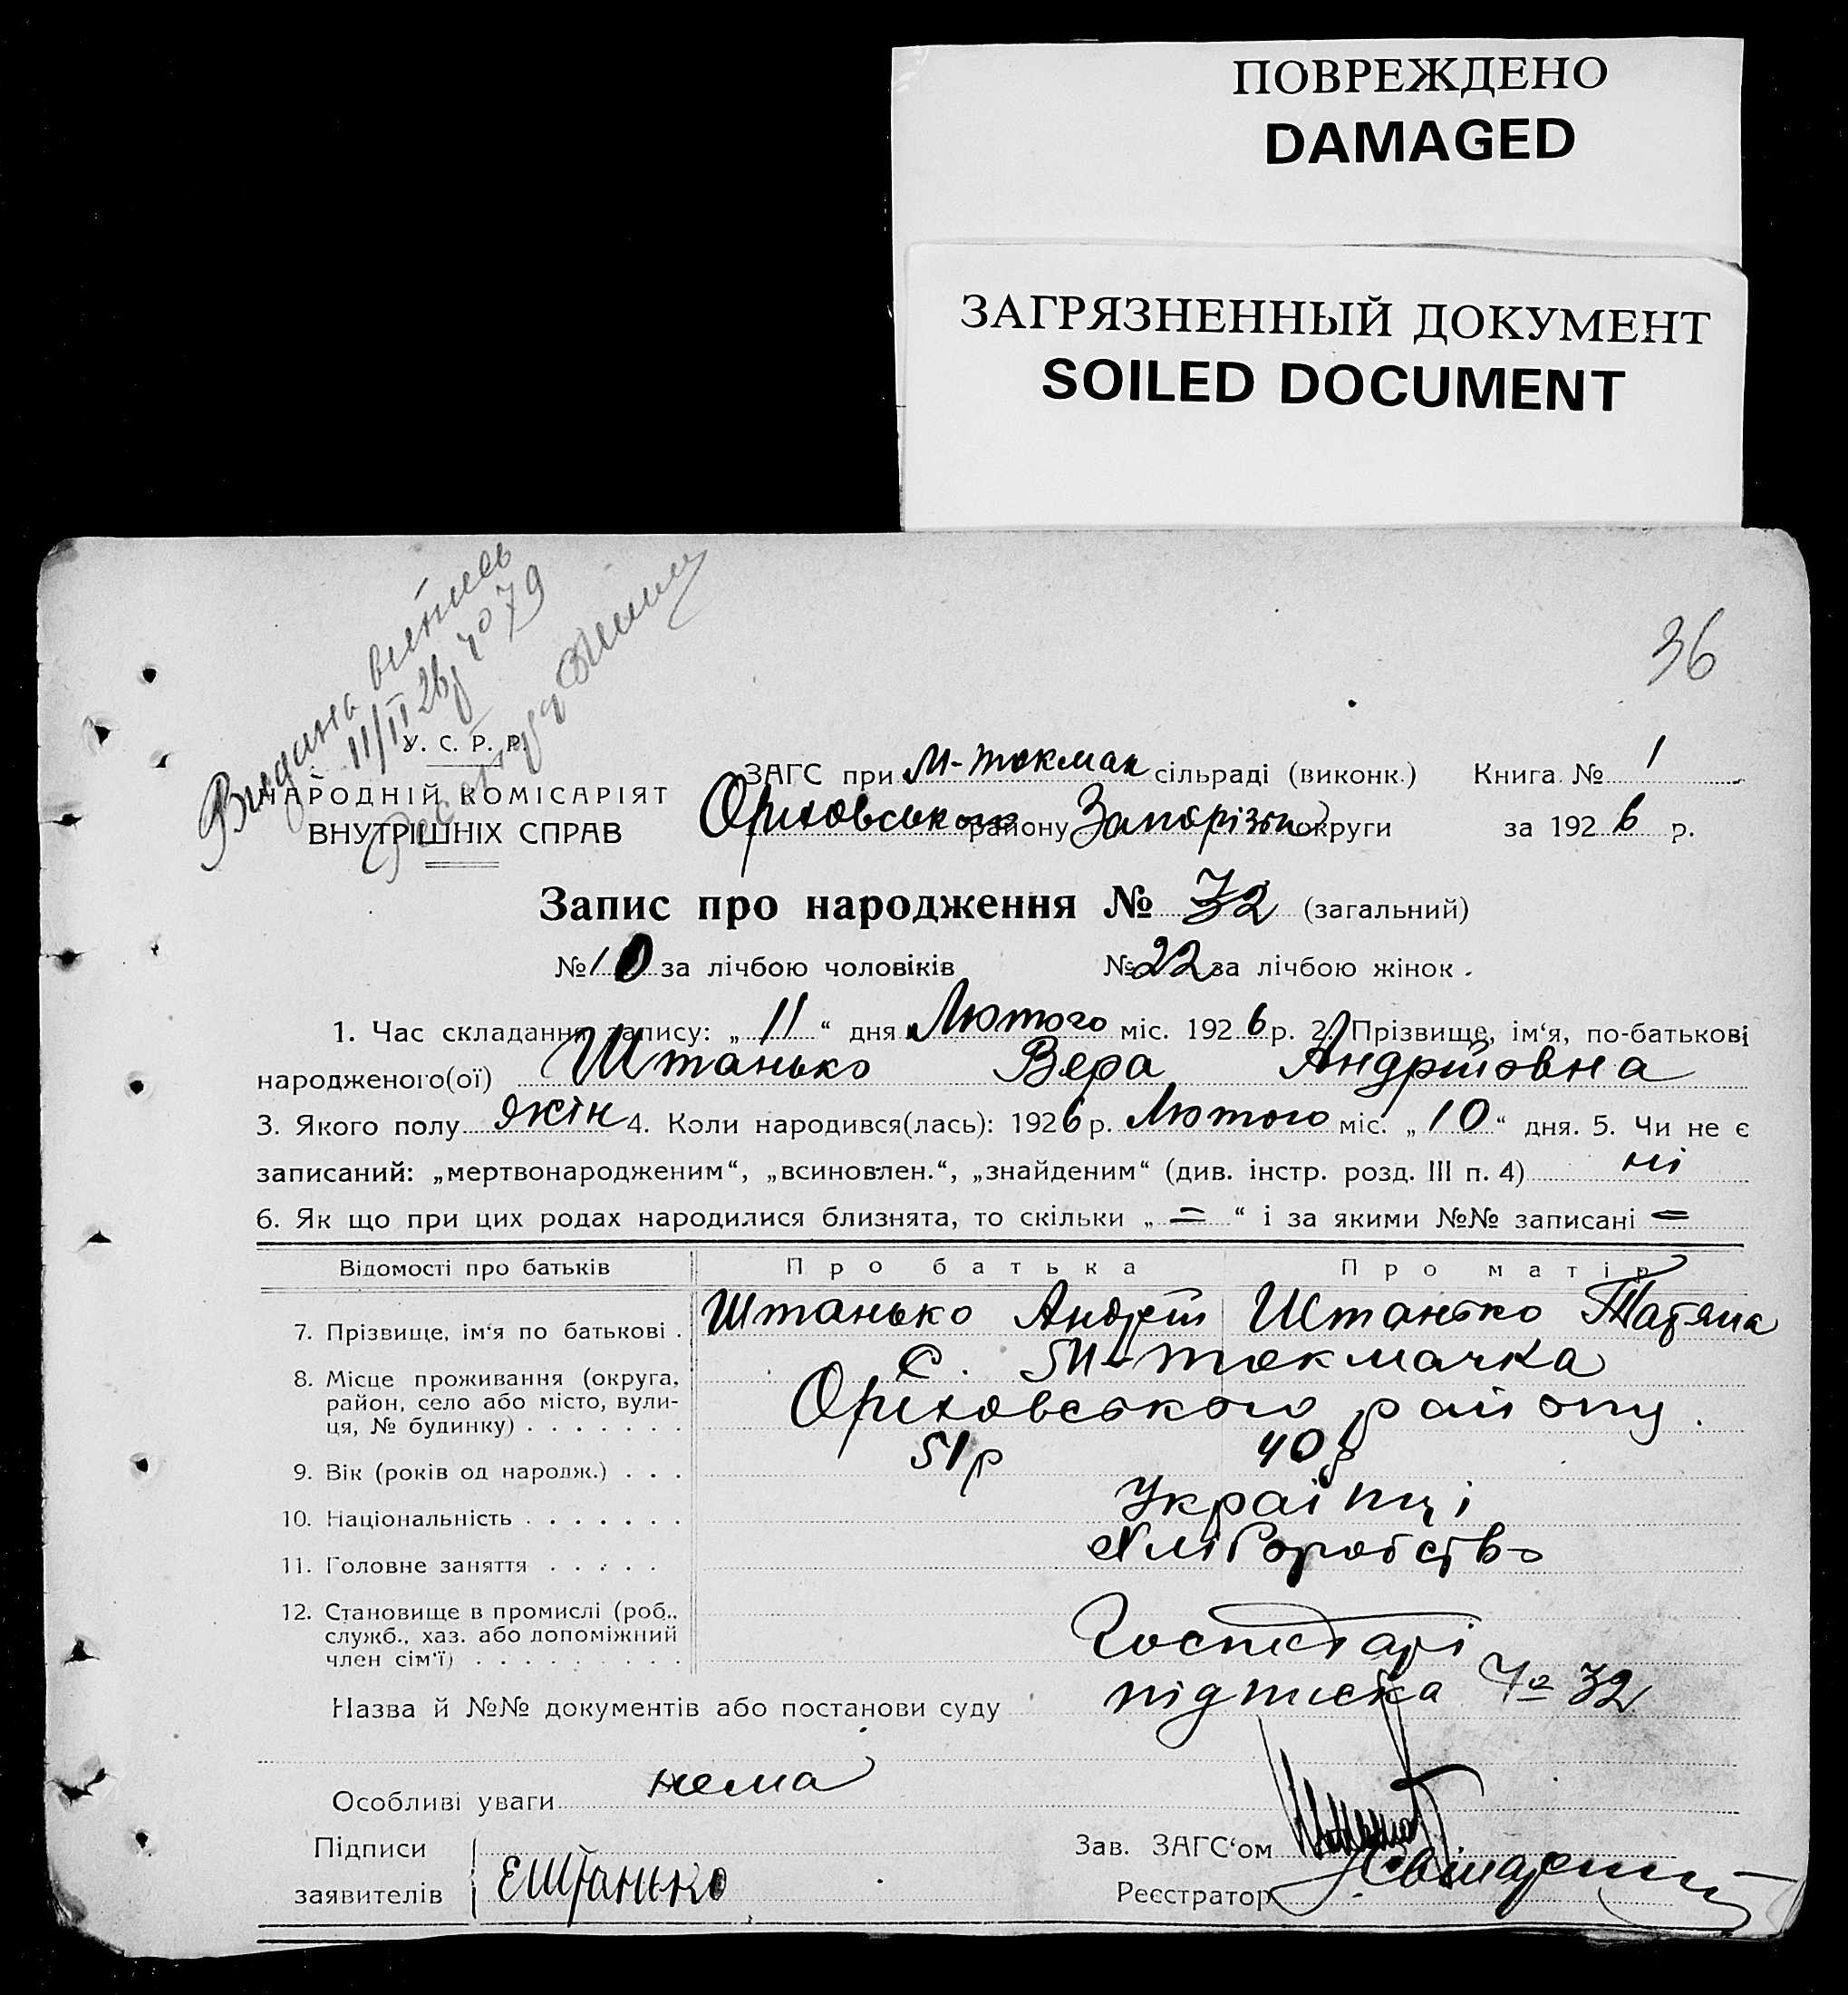 ПОВРЕЖДЕНО
DAMAGED
ЗАГРЯЗНЕННЫЙ ДОКУМЕНТ
SOILED DOCUMENT
36
Видана витпись
11/II 26р № 79
У. С. Р. Р.
НАРОДНІЙ КОМІСАРІЯТ
ВНУТРІШНІХ СПРАВ
ЗАГС при М-токмак сільраді (виконк.) Книга № 1
Оріховського району Запорізької округи за 1926 р.
Запис про народження № 32 (загальний)
№ 10 за лічбою чоловіків № 22 за лічбою жінок.
1. Час складання запису: „ 11 “ дня Лютого міс. 1926 р. 2. Прізвище, ім‘я, по-батькові
народженого(ої) Штанько Вера Андріївна
3. Якого полу жін 4. Коли народився(лась): 1926 р. Лютого міс. „ 10 “ дня. 5. Чи не є
записаний: „мертвонародженим“, „всиновлен.“, „знайденим“ (див. інстр. розд. III п. 4) ні
6. Як що при цих родах народилися близнята, то скільки „ = “ і за якими №№ записані =
Відомості про батьків Про батька Про матір
7. Прізвище, ім‘я по батькові . Штанько Андрій Штанько Татяна
8. Місце проживання (округа, с. М-токмачка
район, село або місто, вули-
ця, № будинку) . . . . . . . Оріховського району.
9. Вік (років од народж.) . . . 51р 40р
10. Національність . . . . . . . Українці
11. Головне заняття . . . . . Хліборобство
12. Становище в промислі (роб.,
служб., хаз. або допоміжний Господарі
член сім‘ї) . . . . . . . . .
Назва й №№ документів або постанови суду підписка № 32
Особливі уваги нема
Підписи Зав. ЗАГС‘ом
заявителів ЕШтанько Реєстратор